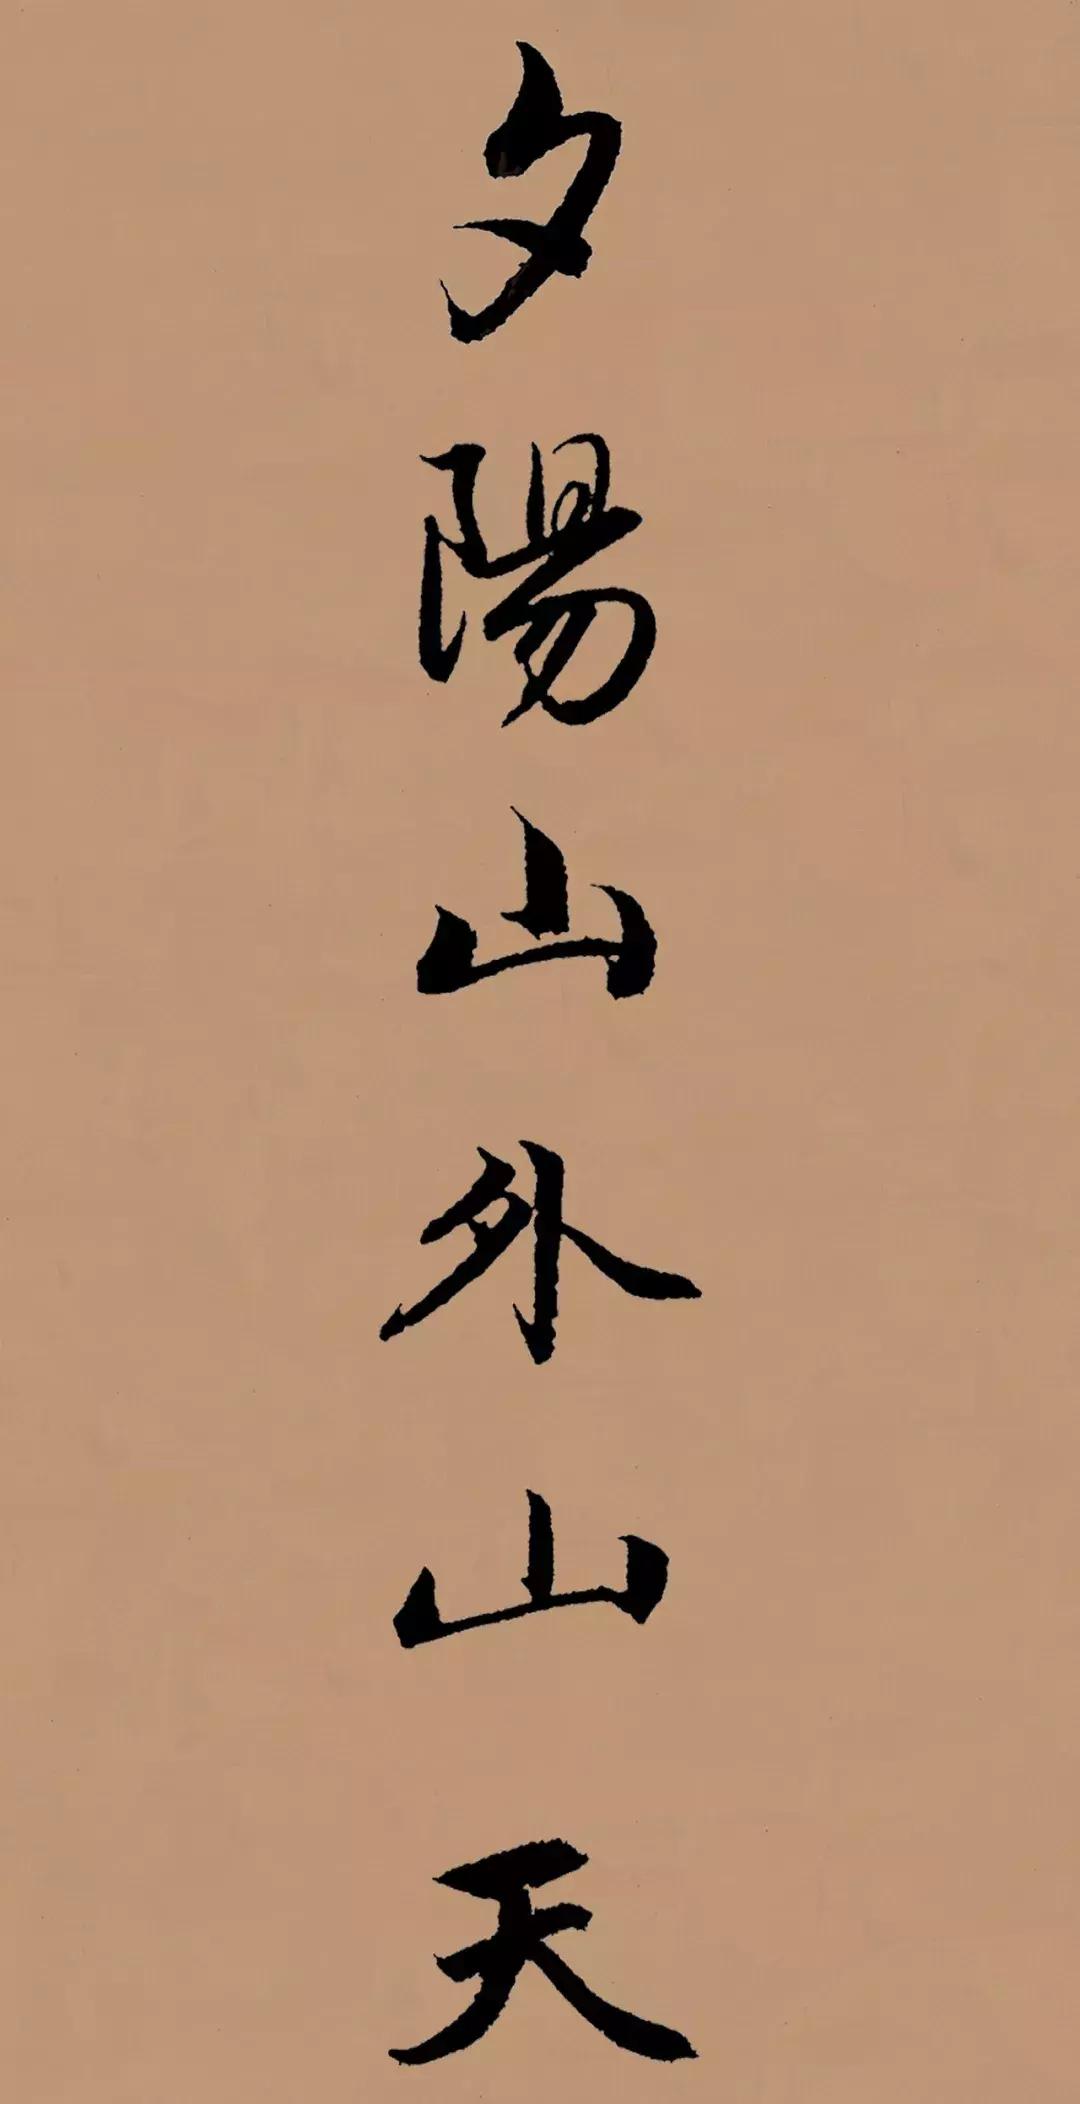 夕陽山外山天